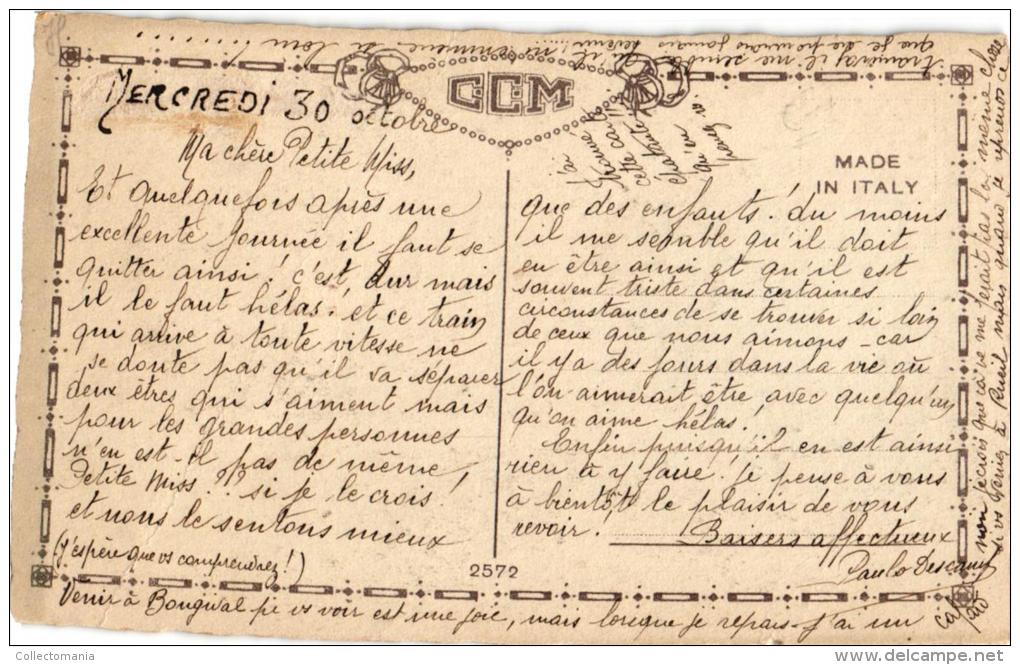 MERCREDI 30 octobre
Ma chère Petite Miss,
Et quelquefois après une
excellente journée il faut se
quitter ainsi ! c'est dur mais
il le faut hélas. et ce train
qui arrive à toute vitesse ne
se doute pas qu'il va séparer
deux êtres qui s'aiment mais
pour les grandes personnes
n'en est-il pas de même
Petite Miss ?!? si je le crois !
et nous le sentons mieux
que des enfants. du moins
il me semble qu'il doit
en être ainsi et qu'il est
souvent triste dans certaines
circonstances de se trouver si loin
de ceux que nous aimons - car
il y a des jours dans la vie où
l'on aimerait être avec quelqu'un
qu'on aime hélas !
Enfin puisqu'il en est ainsi
rien à y faire ! je pense à vous
à bientôt le plaisir de vous
revoir !
Baisers affectueux
Paulo
(j'espère que vs comprendrez !)
Venir à Bougival pr vs voir est une joie, mais lorsque je repars - j'ai un
caf
non je crois que ça ne me ferait pas la même chose
si vs veniez à Rueil mais quand je reprends ce
il me semble
que je ne pourrais jamais
revenir !
loin !.......
j'ai
cette carte
qu'en
C.C.M
MADE
IN ITALY
2572
© Collectomania
www.delcampe.net